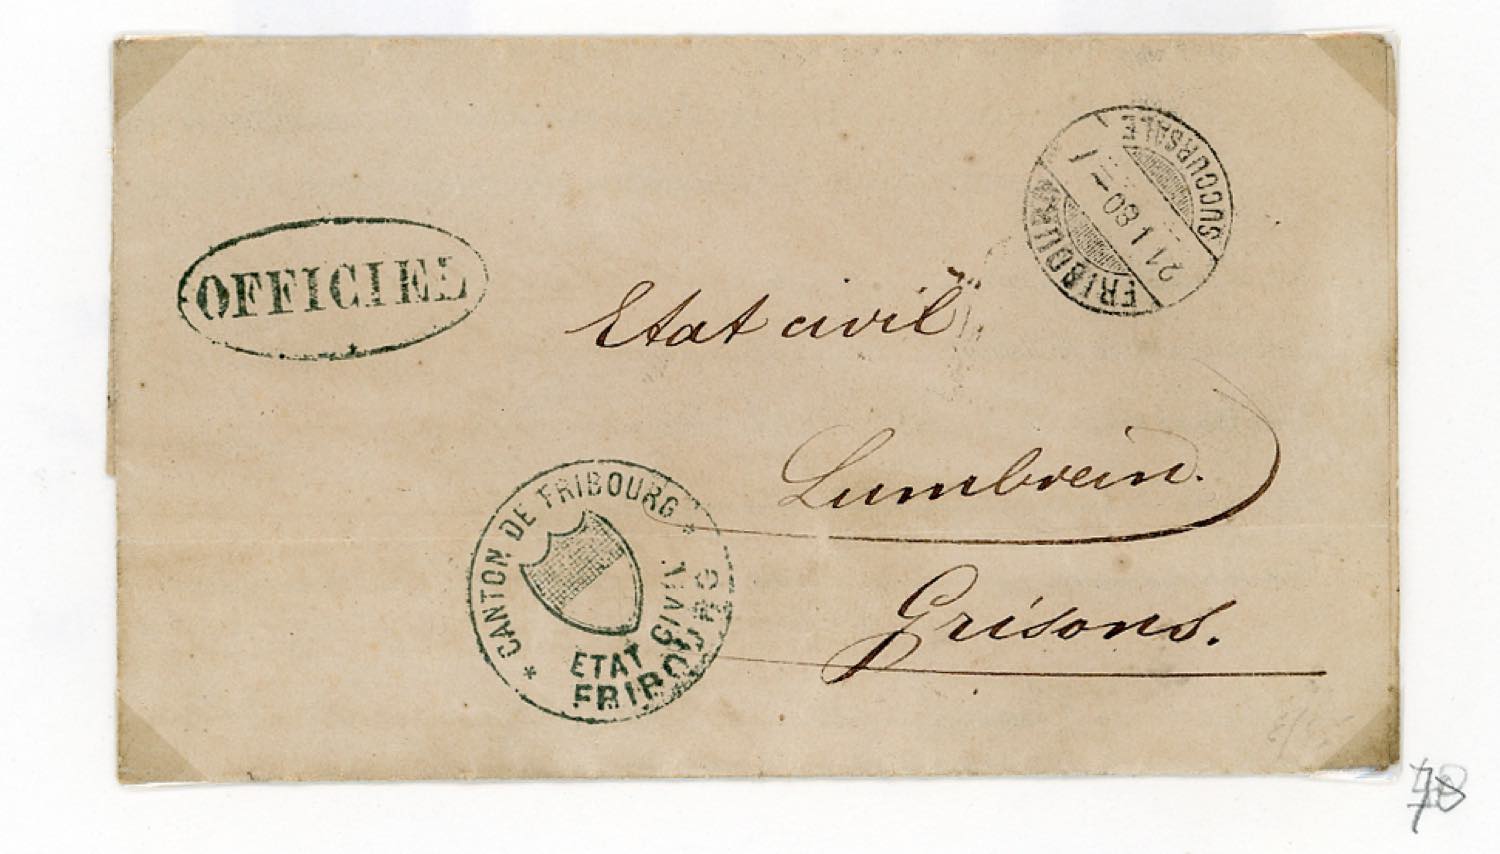 OFFICIEL
FRIBOURG
SUCCURSALE
21 I 80
Etat civil
Lumbrein.
Grisons.
* CANTON DE FRIBOURG *
ETAT CIVIL
FRIBOURG